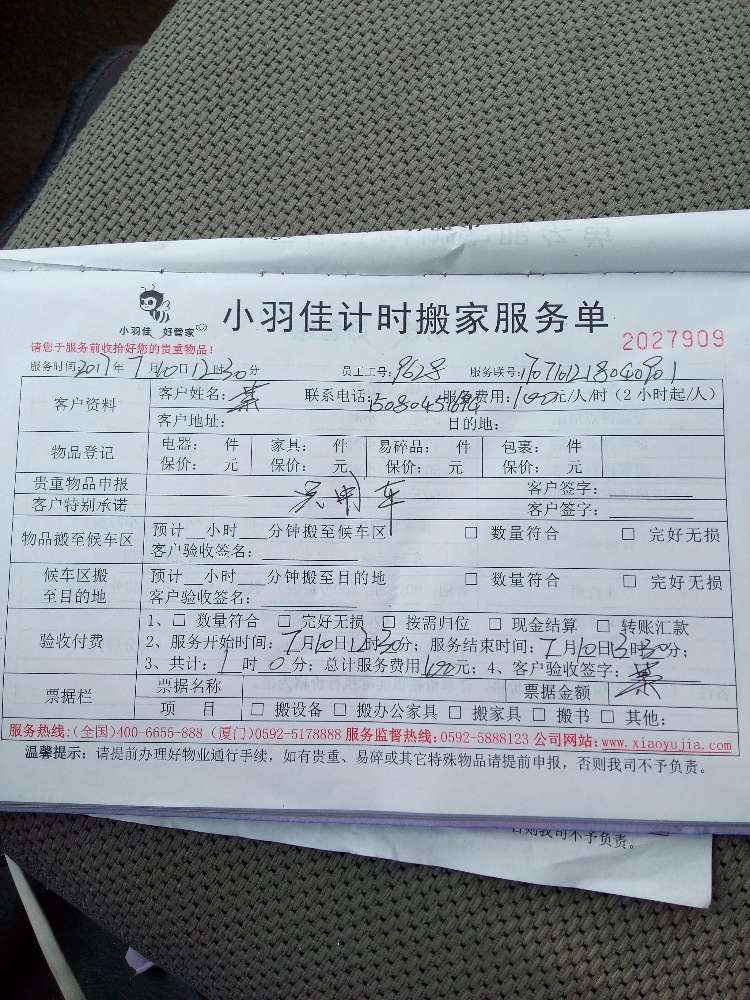 小羽佳 好管家
小羽佳计时搬家服务单
2027909
请您于服务前收拾好您的贵重物品!
服务时间2017年7月10日12时30分 员工工号:9628 服务联号:
客户资料 客户姓名: 联系电话: 服务费用:100元/人/时(2小时起/人)
客户地址: 目的地:
物品登记 电器: 件 家具: 件 易碎品: 件 包裹: 件
保价: 元 保价: 元 保价: 元 保价: 元
贵重物品申报 客户签字:
只用车
客户特别承诺 客户签字:
物品搬至候车区 预计__小时___分钟搬至候车区 □ 数量符合 □ 完好无损
客户验收签名:
候车区搬至目的地 预计__小时___分钟搬至目的地 □ 数量符合 □ 完好无损
客户验收签名:
验收付费 1、□ 数量符合 □ 完好无损 □ 按需归位 □ 现金结算 □ 转账汇款
2、服务开始时间:7月10日12时30分;服务结束时间:7月10日13时30分;
3、共计:1时0分;总计服务费用100元;4、客户验收签字:
票据栏 票据名称 票据金额
项 目 □ 搬设备 □ 搬办公家具 □ 搬家具 □ 搬书 □ 其他:
服务热线:(全国)400-6655-888 (厦门)0592-5178888 服务监督热线:0592-5888123 公司网站:www.xiaoyujia.com
温馨提示:请提前办理好物业通行手续,如有贵重、易碎或其它特殊物品请提前申报,否则我司不予负责。
否则我司不予负责。